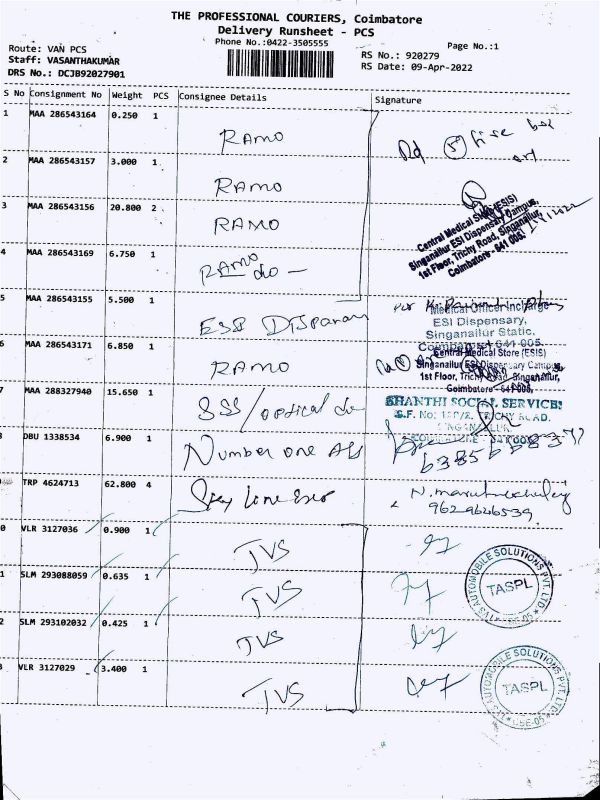 THE PROFESSIONAL COURIERS, Coimbatore
Delivery Runsheet - PCS
Phone No.:0422-3505555
Page No.:1
Route: VAN PCS
RS No.: 920279
Staff: VASANTHAKUMAR
RS Date: 09-Apr-2022
DRS No.: DCJB92027901
S No Consignment No Weight PCS Consignee Details Signature
1 MAA 286543164 0.250 1 RAMO
2 MAA 286543157 3.000 1 RAMO
3 MAA 286543156 20.800 2 RAMO
Central Medical Store (ESIS)
Singanallur ESI Dispensary Campus,
1st Floor, Trichy Road, Singanallur,
Coimbatore - 641 005.
4 MAA 286543169 6.750 1 RAMO
do
5 MAA 286543155 5.500 1 ESB
Medical Officer Incharge
ESI Dispensary,
Singanallur Static,
Coimbatore - 641 005.
6 MAA 286543171 6.850 1 RAMO
Central Medical Store (ESIS)
Singanallur ESI Dispensary Campus
1st Floor, Trichy Road, Singanallur,
Coimbatore - 641 005.
7 MAA 288327940 15.650 1 SSS / optical
SHANTHI SOCIAL SERVICES
S.F. No: TRICHY ROAD,
SINGANALLUR,
DBU 1338534 6.900 1 Number one
TRP 4624713 62.800 4
9629626539
0 VLR 3127036 0.900 1 TVS
1 SLM 293088059 0.635 1 TVS
TVS AUTOMOBILE SOLUTIONS PVT. LTD.
TASPL
CBE-05
2 SLM 293102032 0.425 1 TVS
3 VLR 3127029 3.400 1 TVS
TVS AUTOMOBILE SOLUTIONS PVT. LTD.
TASPL
CBE-05